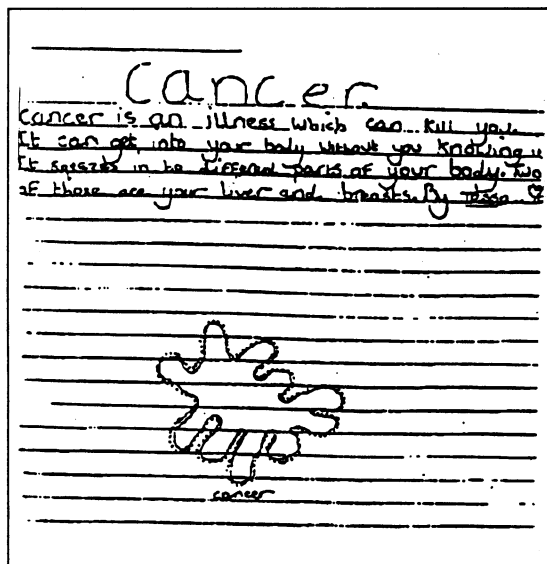 Cancer
Cancer is an illness which can kill you.
It can get into your body without you knowing
It in to different parts of your body. Two
of these are your liver and breasts. By Tessa
cancer